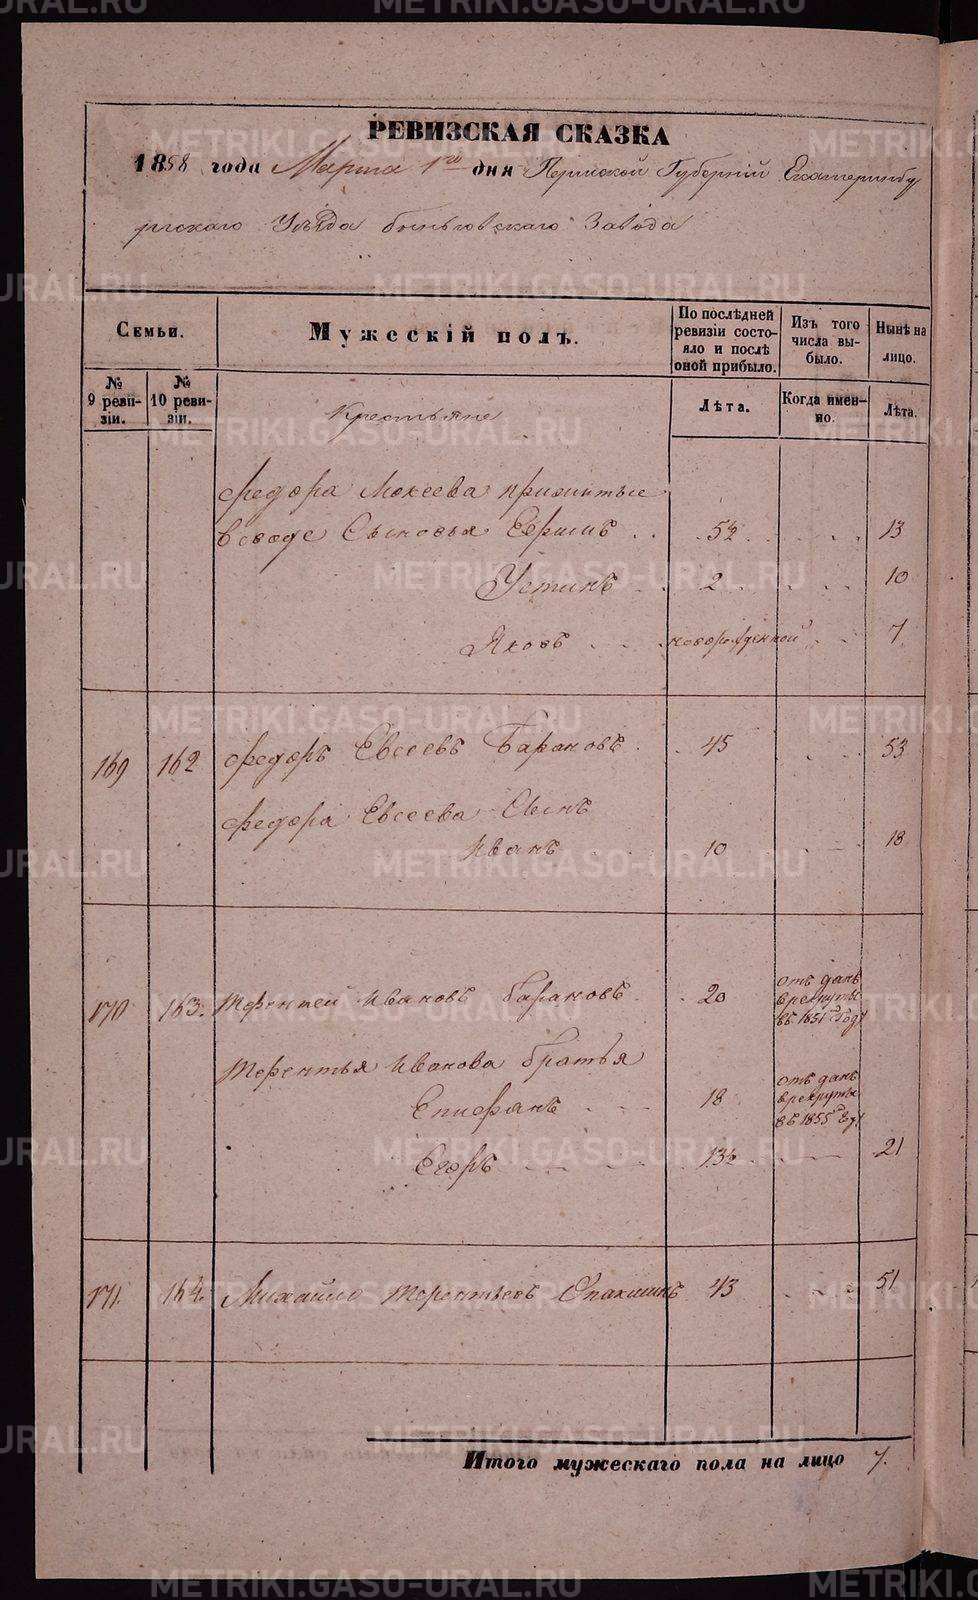 РЕВИЗСКАЯ СКАЗКА
1858 года Марта 1го дня Пермской Губернiй Екатеринбу
ргскаго Уѣзда Быньговскаго Завода
Семьи.
Мужескiй полъ.
По послѣдней ревизiи состояло и послѣ оной прибыло.
Изъ того числа выбыло.
Нынѣ на лицо.
№ 9 ревизiи.
№ 10 ревизiи.
Лѣта.
Когда именно.
Лѣта.
Крестьяне
Федора Мокеева прижитые
вовдове Сыновья Ефимъ 5½ 13
Устинъ 2 10
Яковъ новорожденной 7
169 162 Федоръ Евсеевъ Барановъ 45 53
Федора Евсеева Сынъ
Иванъ 10 18
170 163. Терентей Ивановъ Барановъ 20 отъ данъ
врекруты
въ 1851 Году
Терентья Иванова братья
Епифанъ 18 отъ данъ
врекруты
въ 1855 Году
Егоръ 13½ 21
171. 164. Михайло Терентьевъ 43 51
Итого мужескаго пола на лицо 7.
METRIKI.GASO-URAL.RU